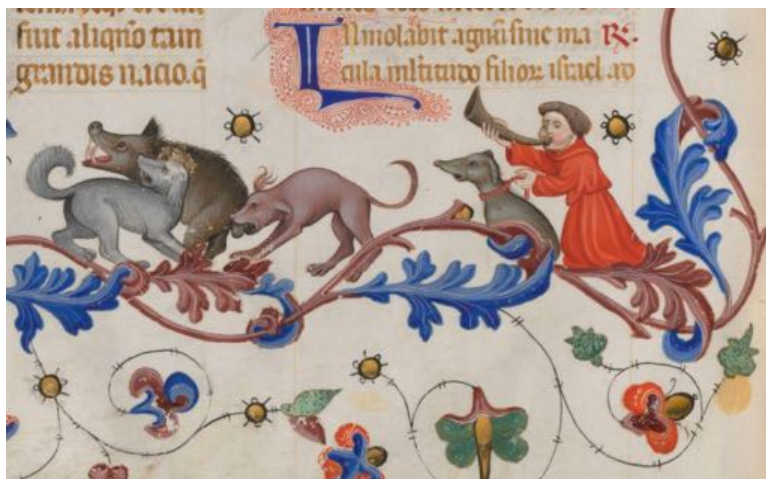 fuit aliqño tam
grandis nacio. q̄
Inmolabit agnū sine ma ℟.
cula mltitudo filioꝝ israel. ad